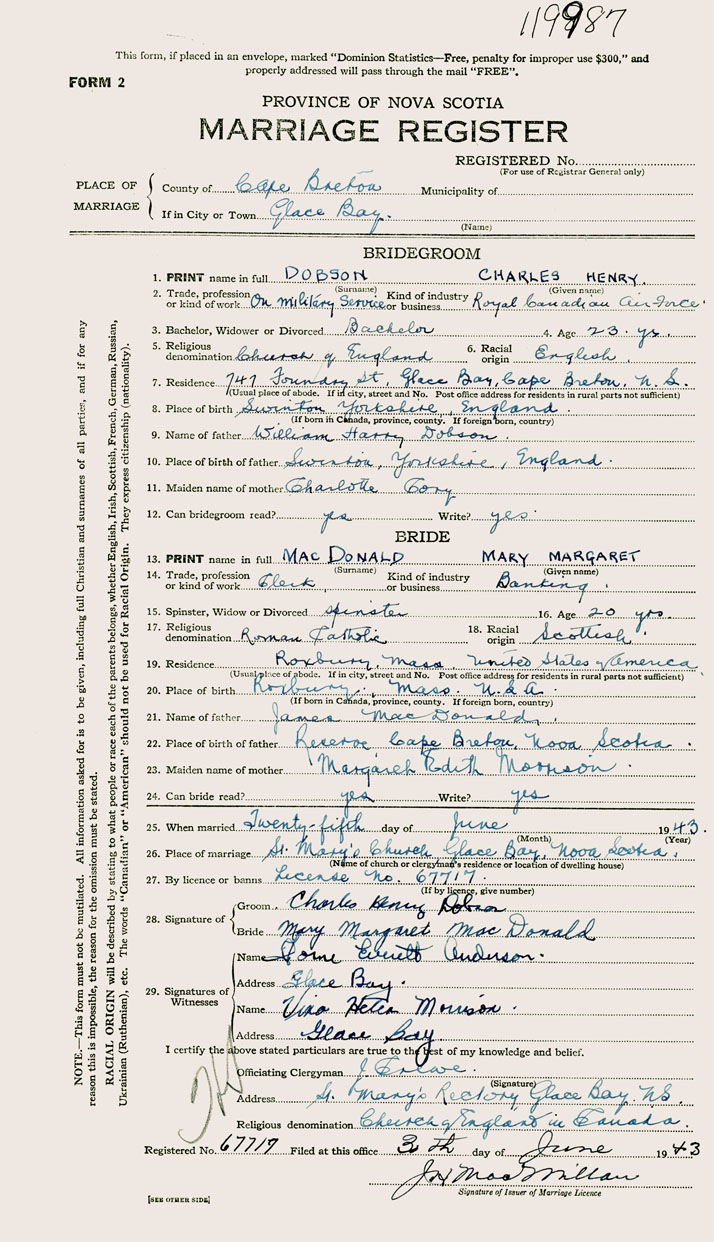 119987
This form, if placed in an envelope, marked “Dominion Statistics—Free, penalty for improper use $300,” and
properly addressed will pass through the mail “FREE”.
FORM 2
PROVINCE OF NOVA SCOTIA
MARRIAGE REGISTER
REGISTERED No.
(For use of Registrar General only)
PLACE OF MARRIAGE
County of Cape Breton Municipality of
If in City or Town Glace Bay.
(Name)
BRIDEGROOM
1. PRINT name in full DOBSON CHARLES HENRY.
(Surname) (Given name)
2. Trade, profession or kind of work On military Service Kind of industry or business Royal Canadian Air Force.
3. Bachelor, Widower or Divorced Bachelor 4. Age 23 yr.
5. Religious denomination Church of England 6. Racial origin English.
7. Residence 747 Foundry St, Glace Bay, Cape Breton, N.S.
(Usual place of abode. If in city, street and No. Post office address for residents in rural parts not sufficient)
8. Place of birth Swinton Yorkshire, England.
(If born in Canada, province, county. If foreign born, country)
9. Name of father William Harry Dobson.
10. Place of birth of father Swinton, Yorkshire, England.
11. Maiden name of mother Charlotte Cory
12. Can bridegroom read? yes Write? yes
BRIDE
13. PRINT name in full MAC DONALD MARY MARGARET
(Surname) (Given name)
14. Trade, profession or kind of work Clerk Kind of industry or business Banking.
15. Spinster, Widow or Divorced Spinster 16. Age 20 yrs.
17. Religious denomination Roman Catholic 18. Racial origin Scottish.
19. Residence Roxbury, Mass, United States of America.
(Usual place of abode. If in city, street and No. Post office address for residents in rural parts not sufficient)
20. Place of birth Roxbury, Mass. U.S.A.
(If born in Canada, province, county. If foreign born, country)
21. Name of father James MacDonald,
22. Place of birth of father Reserve Cape Breton, Nova Scotia.
23. Maiden name of mother Margaret Edith Morrison.
24. Can bride read? yes Write? yes
25. When married Twenty-fifth day of June 1943.
(Month) (Year)
26. Place of marriage St. Mary's Church Glace Bay, Nova Scotia.
(Name of church or clergyman's residence or location of dwelling house)
27. By licence or banns License No. 67717.
(If by licence, give number)
28. Signature of
Groom Charles Henry Dobson
Bride Mary Margaret Mac Donald
29. Signatures of Witnesses
Name Lorne Everett Anderson.
Address Glace Bay.
Name Helen Morrison.
Address Glace Bay
I certify the above stated particulars are true to the best of my knowledge and belief.
Officiating Clergyman
(Signature)
Address St. Mary's Rectory Glace Bay. NS.
Religious denomination Church of England in Canada.
Registered No. 67717 Filed at this office day of June 1943
J H MacMillan
Signature of Issuer of Marriage Licence
[SEE OTHER SIDE]
NOTE.—This form must not be mutilated. All information asked for is to be given, including full Christian and surnames of all parties, and if for any
reason this is impossible, the reason for the omission must be stated.
RACIAL ORIGIN will be described by stating to what people or race each of the parents belongs, whether English, Irish, Scottish, French, German, Russian,
Ukrainian (Ruthenian), etc. The words “Canadian” or “American” should not be used for Racial Origin. They express citizenship (nationality).